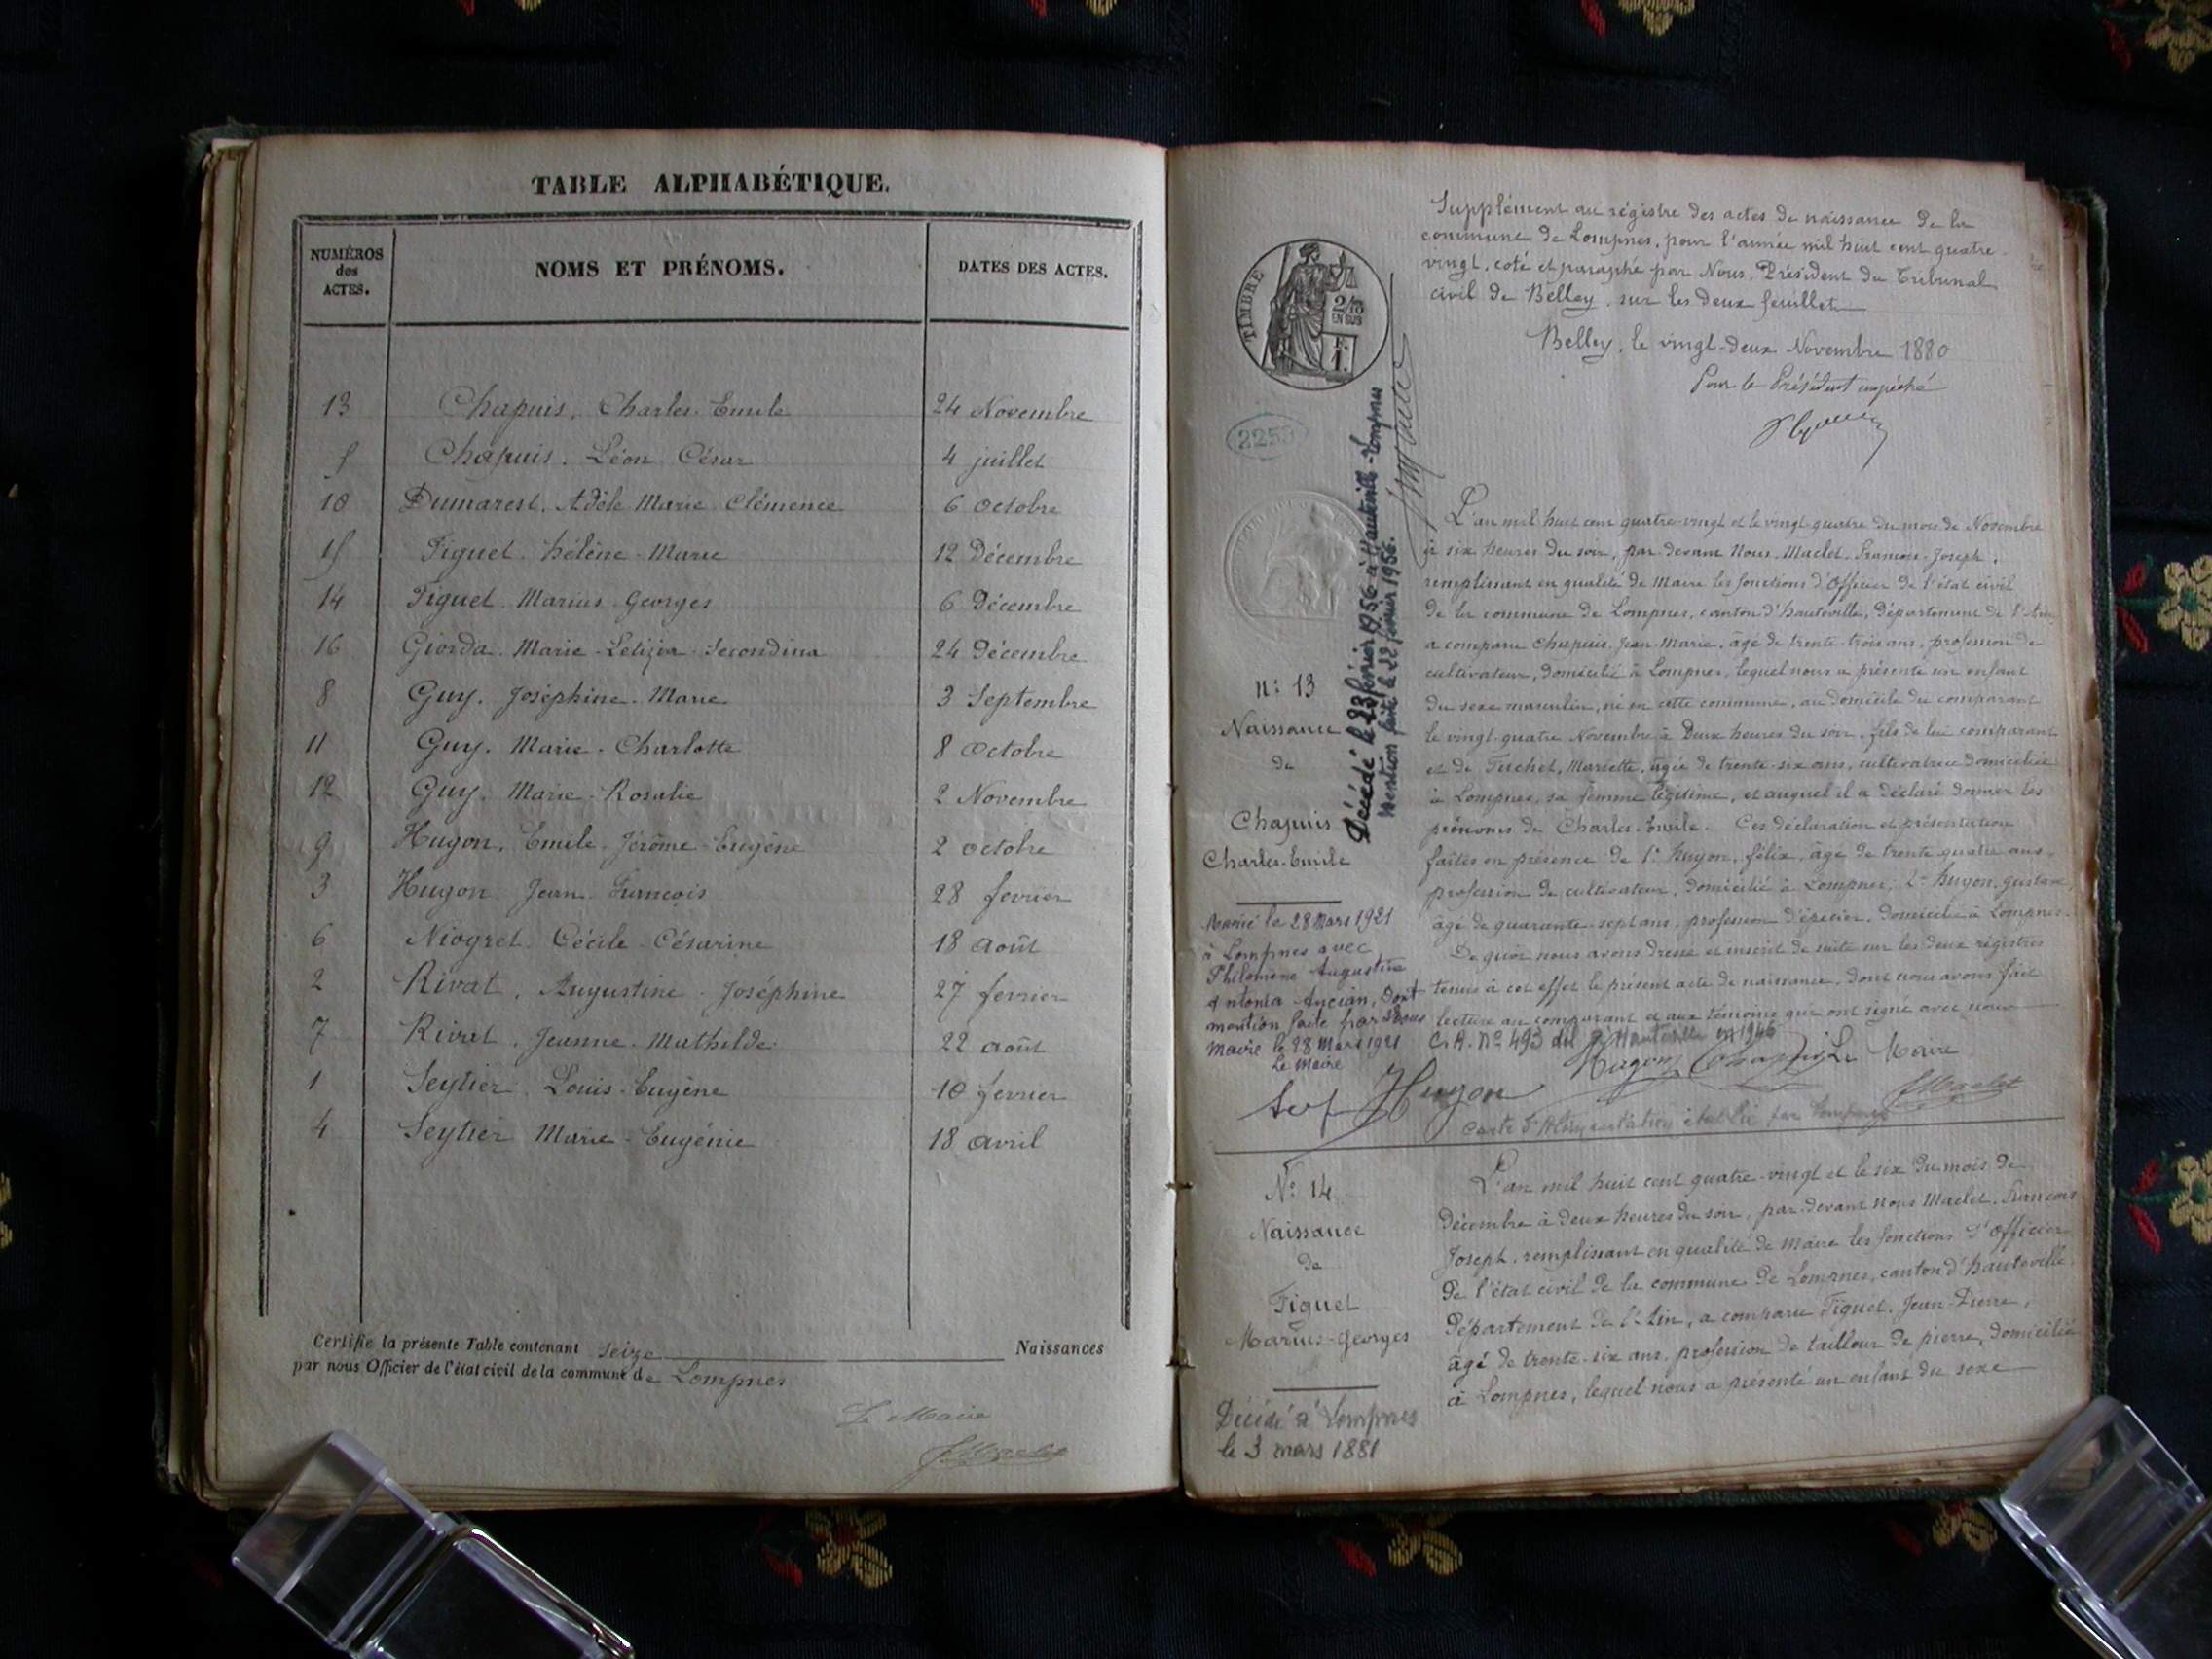 TABLE ALPHABÉTIQUE.
NUMÉROS des ACTES. NOMS ET PRÉNOMS. DATES DES ACTES.
13 Chapuis, Charles-Emile 24 Novembre
5 Chapuis. Léon César 4 juillet
10 Dumarest. Adèle Marie Clémence 6 octobre
15 Figuet. hélène-Marie 12 Décembre
14 Figuet. Marius-Georges 6 Décembre
16 Giorda. Marie-Letizia-Secondina 24 Décembre
8 Guy. Joséphine-Marie 3 Septembre
11 Guy. Marie-Charlotte 8 octobre
12 Guy. Marie-Rosalie 2 Novembre
9 Hugon. Emile-Jérôme-Eugène 2 octobre
3 Hugon Jean François 28 fevrier
6 Niogret Cécile-Césarine 18 août
2 Rivat, Augustine-Joséphine 27 fevrier
7 Rivat. Jeanne-Mathilde 22 août
1 Seytier. Louis-Eugène 10 fevrier
4 Seytier Marie-Eugénie 18 avril
Certifie la présente Table contenant seize Naissances
par nous Officier de l'état civil de la commune de Lompnes
Le Maire
FMaclet
Supplément au régistre des actes de naissance de la
commune de Lompnes, pour l'année mil huit cent quatre-
vingt, coté et paraphé par Nous, Président du Tribunal
civil de Belley, sur les deux feuillets
Belley, le vingt-deux Novembre 1880
Pour le Président empêché
TIMBRE
2/10
EN SUS
1F.
2253
L'an mil huit cent quatre-vingt et le vingt-quatre du mois de Novembre
à six heures du soir, par-devant Nous, Maclet, François-Joseph,
remplissant en qualité de Maire les fonctions d'Officier de l'état civil
de la commune de Lompnes, canton d'hauteville, Département de l'Ain
a comparu Chapuis, Jean-Marie, âgé de trente-trois ans, profession de
cultivateur, domicilié à Lompnes, lequel nous a présenté un enfant
du sexe masculin, né en cette commune, au domicile du comparant
le vingt-quatre Novembre à Deux heures du soir, fils de lui comparant
et de Mariette, âgée de trente-six ans, cultivatrice domiciliée
à Lompnes, sa femme légitime, et auquel il a déclaré donner les
prénoms de Charles-Emile. Ces déclaration et présentation
faites en présence de 1° hugon, félix, âgé de trente-quatre ans,
profession de cultivateur, domicilié à Lompnes; 2° hugon, gustave,
âgé de quarante-sept ans, profession d'épicier, domicilié à Lompnes.
De quoi nous avons dressé et inscrit de suite sur les deux régistres
tenus à cet effet le présent acte de naissance, dont nous avons fait
lecture au comparant et aux témoins qui ont signé avec nous
C.A. N° 493 del Hauteville en 1946
Hugon Chapuis Le Maire
Hugon FMaclet
Carte d'Alimentation établie par Lompnes
n: 13
Naissance
de
Chapuis
Charles-Emile
Marié le 28 Mars 1921
à Lompnes avec
Philomène Augustine
Antonia Ancian, Dont
mention faite par Nous
Maire le 28 Mars 1921
Le Maire
Décédé le 23 février 1956 à Hauteville-Lompnes
Mention faite le 22 février 1956.
N° 14
Naissance
de
Figuet
Marius-Georges
Décédé à Lompnes
le 3 mars 1881
L'an mil huit cent quatre-vingt et le six du mois de
Décembre à deux heures du soir, par-devant Nous Maclet, François
Joseph, remplissant en qualité de Maire les fonctions d'Officier
de l'état civil de la commune de Lompnes, canton d'hauteville,
Département de l'Ain, a comparu Figuet, Jean-Pierre,
âgé de trente-six ans, profession de tailleur de pierre, domicilié
à Lompnes, lequel nous a présenté un enfant du sexe